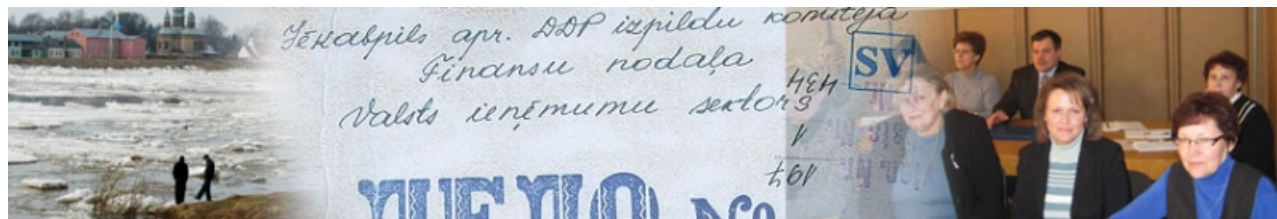 Jēkabpils apr. DDP izpildu komiteja
Finansu nodaļa
Valsts ieņēmumu sektors
SV
434
1
197
ДЕЛО №